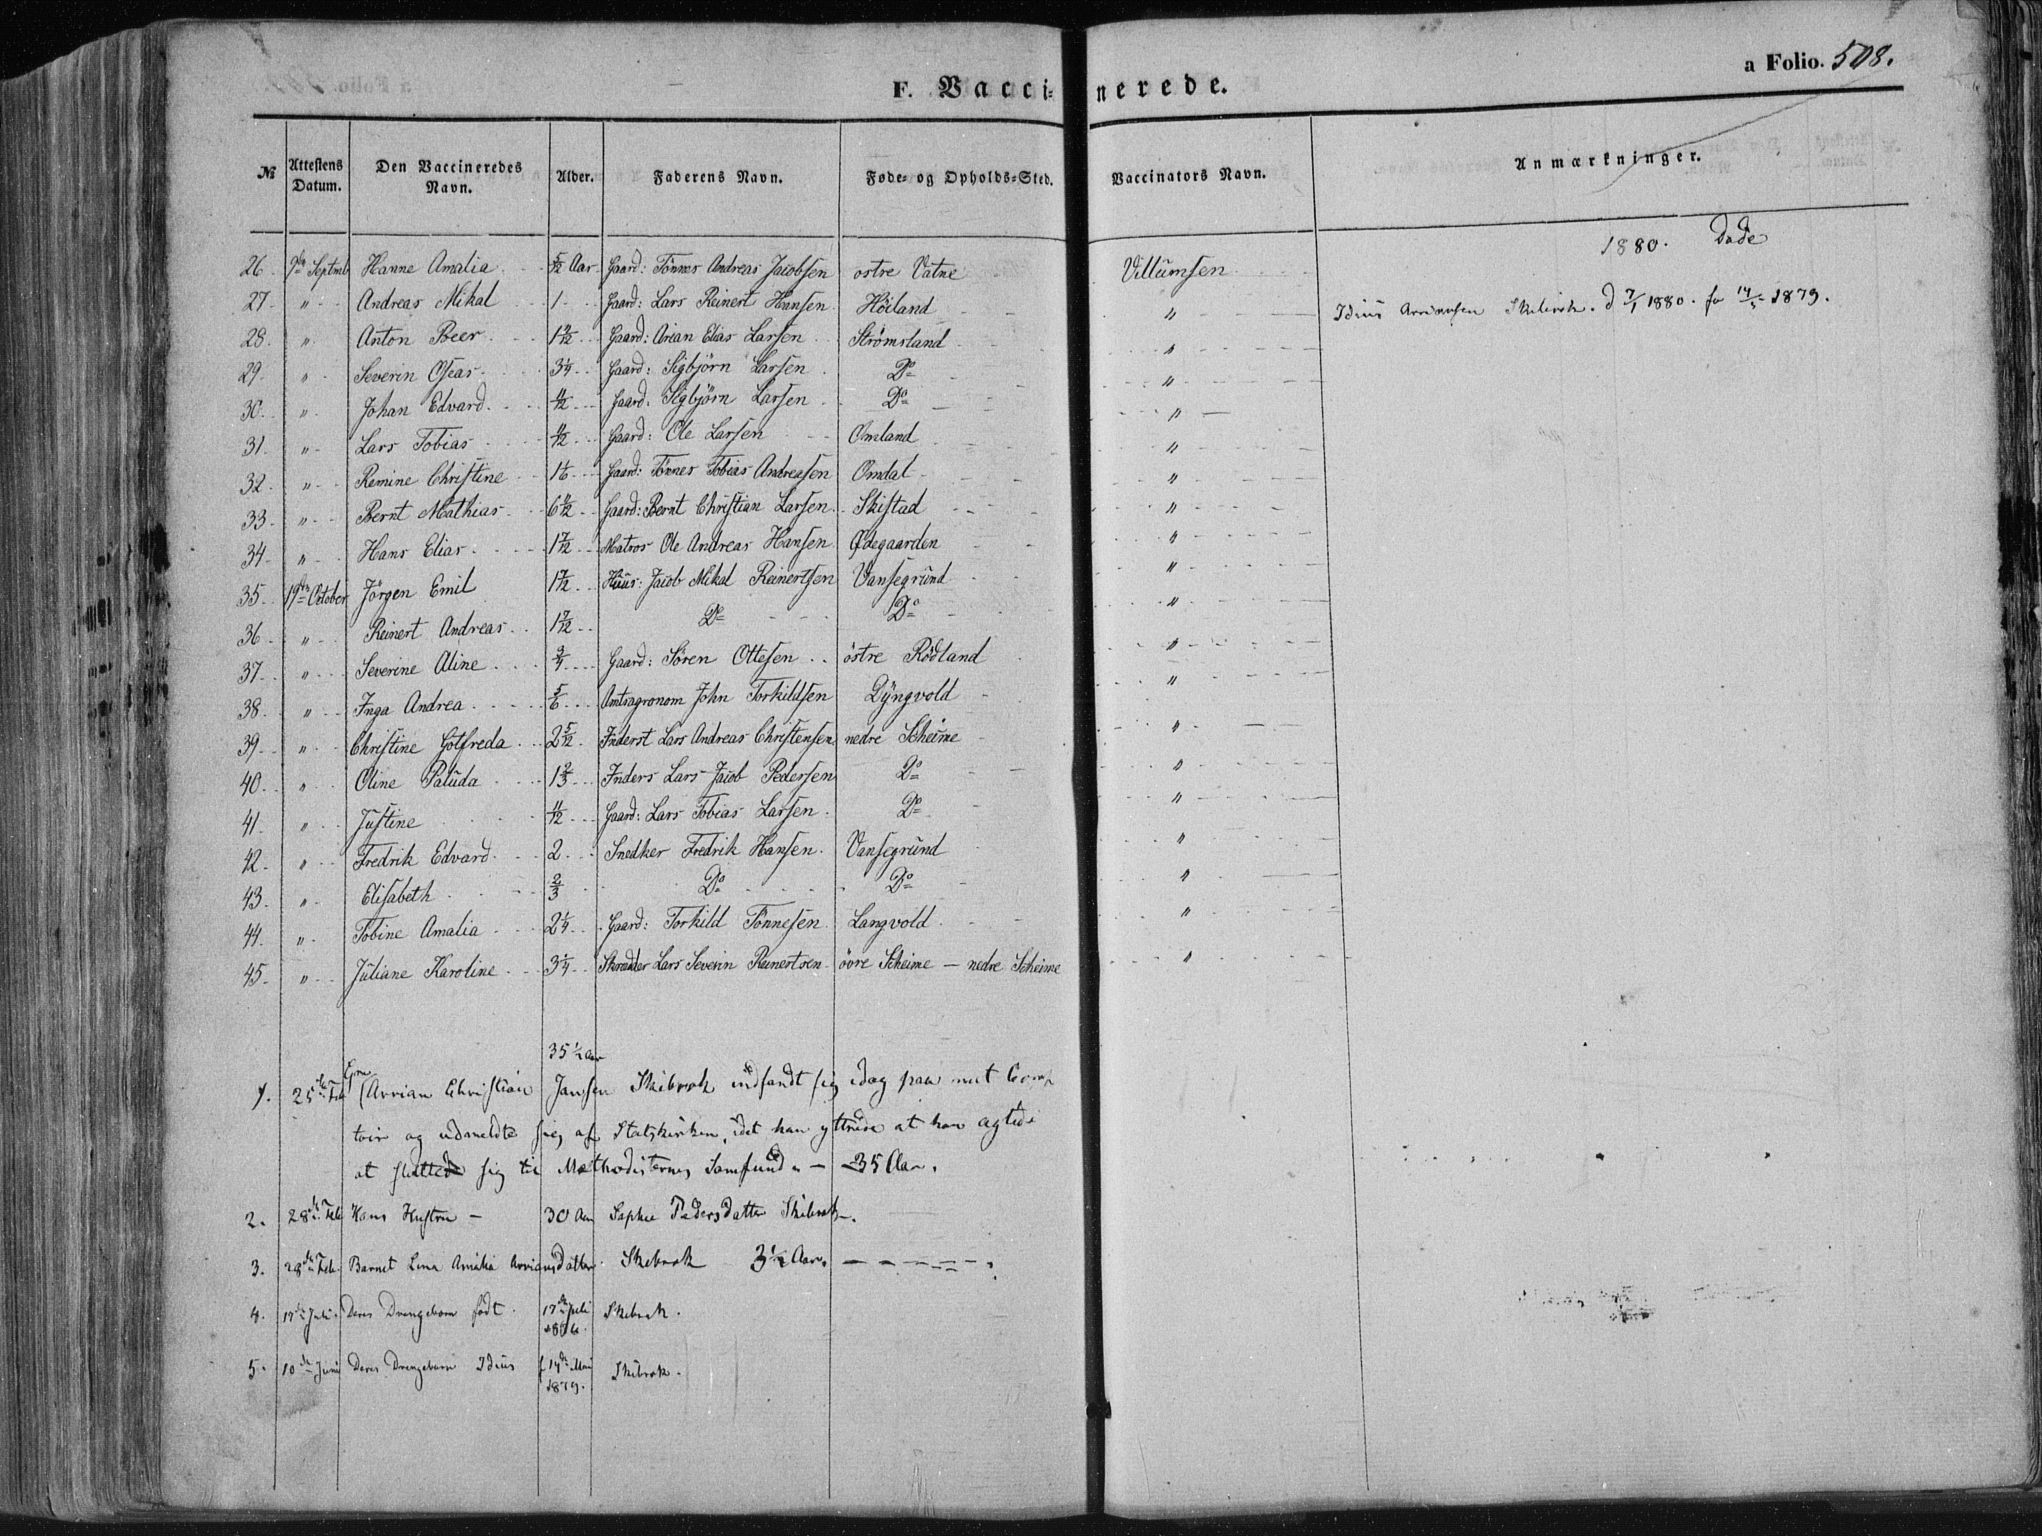 a Folio. 508.
F. Vacci- nerede.
№ Attestens Datum. Den Vaccineredes Navn. Alder. Faderens Navn. Føde- og Opholds-Sted. Vaccinators Navn. Anmærkninger.
1880. Døde
26 9de Septmb Hanne Amalia 5/12 Aar Gaard: Tönnes Andreas Jacobsen ostre Vatne Villumsen
27 " Andreas Mikal 1 Gaard: Lars Reinert Hansen Höiland "
Idius Arriansen Skibrok. d 7/1 1880. fø 14/5 1879.
28 " Anton Peer 1 11/12 Gaard: Arian Elias Larsen Strømsland "
29. " Severin Oseas 3 1/4 Gaard: Sigbjörn Larsen Do "
30. " Johan Edvard 11/12 Gaard: Sigbjörn Larsen Do "
31. " Lars Tobias 11/12 Gaard: Ole Larsen Omland "
32 " Remine Christine 1 1/6 Gaard: Tönnes Tobias Andreasen Omdal "
33 " Bernt Mathias 6 11/12 Gaard: Bernt Christian Larsen Skistad "
34 " Hans Elias 1 7/12 Matros Ole Andreas Hansen Ødegaarden "
35 19de October Jörgen Emil 1 7/12 Huus: Jacob Mikal Reinertsen Vansegrund "
36 " Reinert Andreas 1 7/12 Do Do "
37 " Severine Aline 3/4 Gaard: Sören Ottesen östre Rödland "
38 " Inga Andrea 5/6 Amtsagronom John Torkildsen Dÿngvold "
39 " Christine Gotfreda 2 5/12 Inderst Lars Andreas Christensen nedre Scheime "
40 " Oline Paluda 1 2/3 Inders Lars Jacob Pedersen Do "
41. " Justine 11/12 Gaard: Lars Tobias Larsen Do "
42. " Fredrik Edvard 2 Snedker Fredrik Hansen Vansegrund "
43. " Elisabeth 2/3 Do Do "
44. " Tobine Amalia 2 1/4 Gaard: Torkild Tönnesen Langvold "
45. " Juliane Karoline 3 1/4 Skrædder Lars Severin Reinertsen övre Scheime — nedre Scheime "
35 1/2 Aar
1. 25de Feb Arrian Christian Jansen Skibrok indfandt sig idag paa mit Comp
toir og udmeldte sig af Statskirken, idet han yttrede at han agtede
at slutte sig til Methodisternes Samfund. — 35 Aar.
2. 28de Feb Hans Hustru — 30 Aar Sophie Pedersdatter Skibrok.
3. 28de Feb. Barnet Lina Amalia Arriansdatter Skibrok 3 1/2 Aar.
4. 17de Juli. Deres Drengebarn födt 17de Juli Skibrok.
5. 10de Juni Deres Drengebarn Idius f 14de Mai 1879. Skibrok.